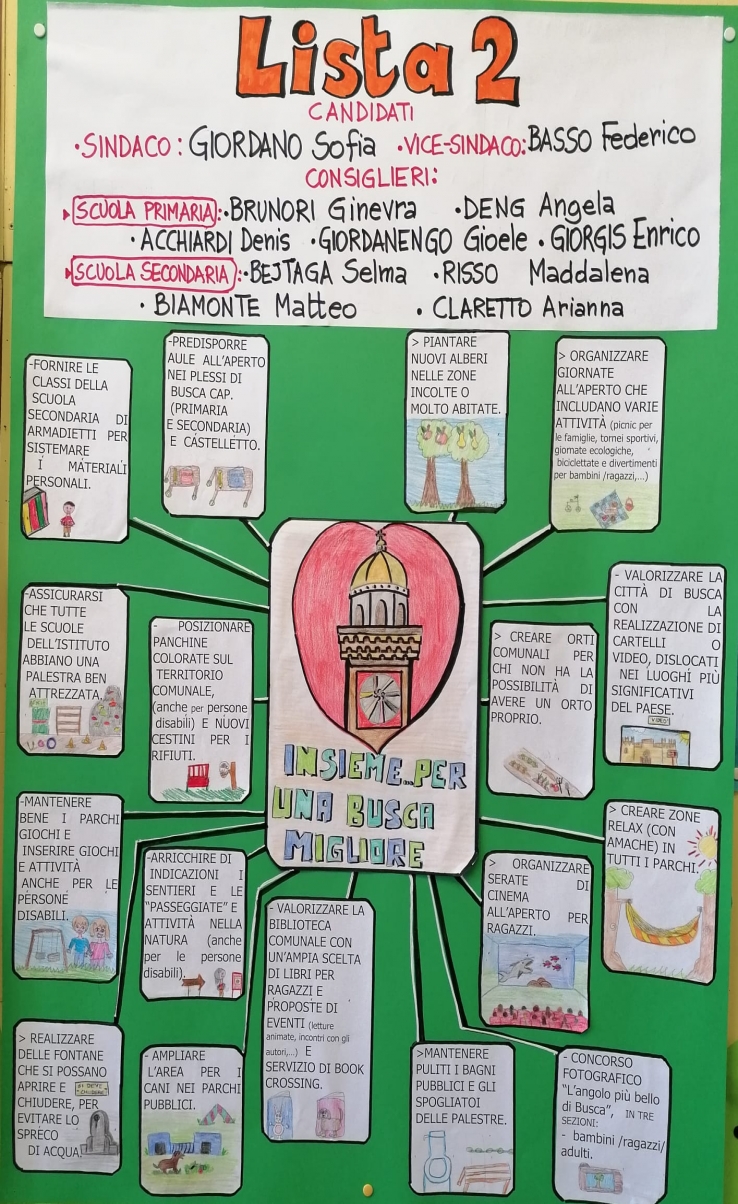 Lista 2
CANDIDATI
•SINDACO: GIORDANO Sofia •VICE-SINDACO: BASSO Federico
CONSIGLIERI:
SCUOLA PRIMARIA: •BRUNORI Ginevra •DENG Angela
•ACCHIARDI Denis •GIORDANENGO Gioele •GIORGIS Enrico
SCUOLA SECONDARIA: •BEJTAGA Selma •RISSO Maddalena
•BIAMONTE Matteo •CLARETTO Arianna
-FORNIRE LE
CLASSI DELLA
SCUOLA
SECONDARIA DI
ARMADIETTI PER
SISTEMARE
I MATERIALI
PERSONALI.
-PREDISPORRE
AULE ALL'APERTO
NEI PLESSI DI
BUSCA CAP.
(PRIMARIA
E SECONDARIA)
E CASTELLETTO.
> PIANTARE
NUOVI ALBERI
NELLE ZONE
INCOLTE O
MOLTO ABITATE.
> ORGANIZZARE
GIORNATE
ALL'APERTO CHE
INCLUDANO VARIE
ATTIVITÀ (picnic per
le famiglie, tornei sportivi,
giornate ecologiche,
biciclettate e divertimenti
per bambini /ragazzi,...)
-ASSICURARSI
CHE TUTTE
LE SCUOLE
DELL'ISTITUTO
ABBIANO UNA
PALESTRA BEN
ATTREZZATA.
- POSIZIONARE
PANCHINE
COLORATE SUL
TERRITORIO
COMUNALE,
(anche per persone
disabili) E NUOVI
CESTINI PER I
RIFIUTI.
INSIEME...PER
UNA BUSCA
MIGLIORE
> CREARE ORTI
COMUNALI PER
CHI NON HA LA
POSSIBILITÀ DI
AVERE UN ORTO
PROPRIO.
- VALORIZZARE LA
CITTÀ DI BUSCA
CON LA
REALIZZAZIONE DI
CARTELLI O
VIDEO, DISLOCATI
NEI LUOGHI PIÙ
SIGNIFICATIVI
DEL PAESE.
VIDEO
-MANTENERE
BENE I PARCHI
GIOCHI E
INSERIRE GIOCHI
E ATTIVITÀ
ANCHE PER LE
PERSONE
DISABILI.
-ARRICCHIRE DI
INDICAZIONI I
SENTIERI E LE
"PASSEGGIATE" E
ATTIVITÀ NELLA
NATURA (anche
per le persone
disabili).
- VALORIZZARE LA
BIBLIOTECA
COMUNALE CON
UN'AMPIA SCELTA
DI LIBRI PER
RAGAZZI E
PROPOSTE DI
EVENTI (letture
animate, incontri con gli
autori,...) E
SERVIZIO DI BOOK
CROSSING.
> ORGANIZZARE
SERATE DI
CINEMA
ALL'APERTO PER
RAGAZZI.
> CREARE ZONE
RELAX (CON
AMACHE) IN
TUTTI I PARCHI.
> REALIZZARE
DELLE FONTANE
CHE SI POSSANO
APRIRE E
CHIUDERE, PER
EVITARE LO
SPRECO
DI ACQUA.
SI DEVE
CHIUDERE
- AMPLIARE
L'AREA PER I
CANI NEI PARCHI
PUBBLICI.
>MANTENERE
PULITI I BAGNI
PUBBLICI E GLI
SPOGLIATOI
DELLE PALESTRE.
- CONCORSO
FOTOGRAFICO
"L'angolo più bello
di Busca", IN TRE
SEZIONI:
- bambini /ragazzi/
adulti.